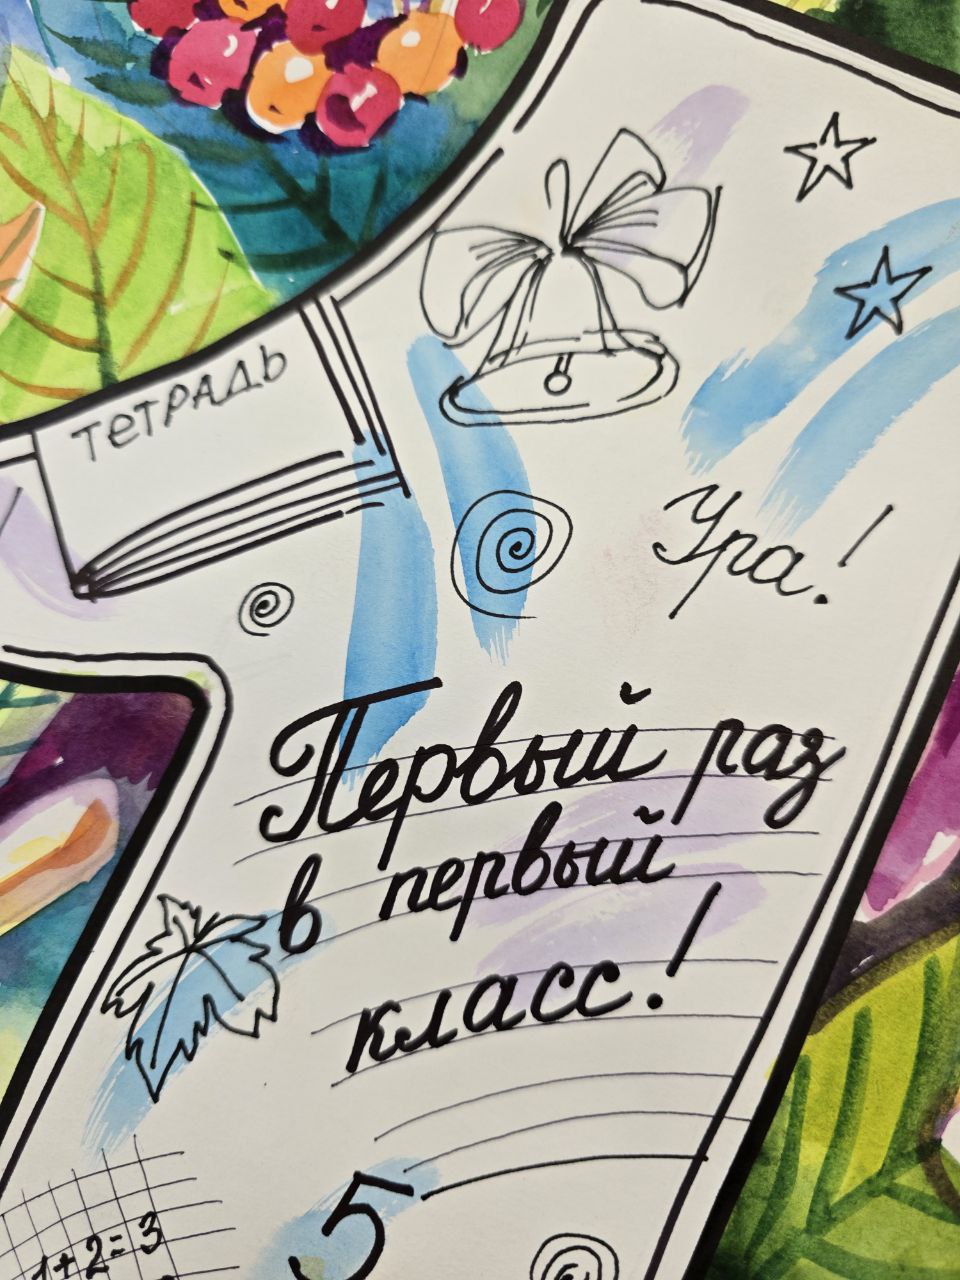 тетрадь
Ура!
Первый раз
в первый
класс!
5
1+2=3